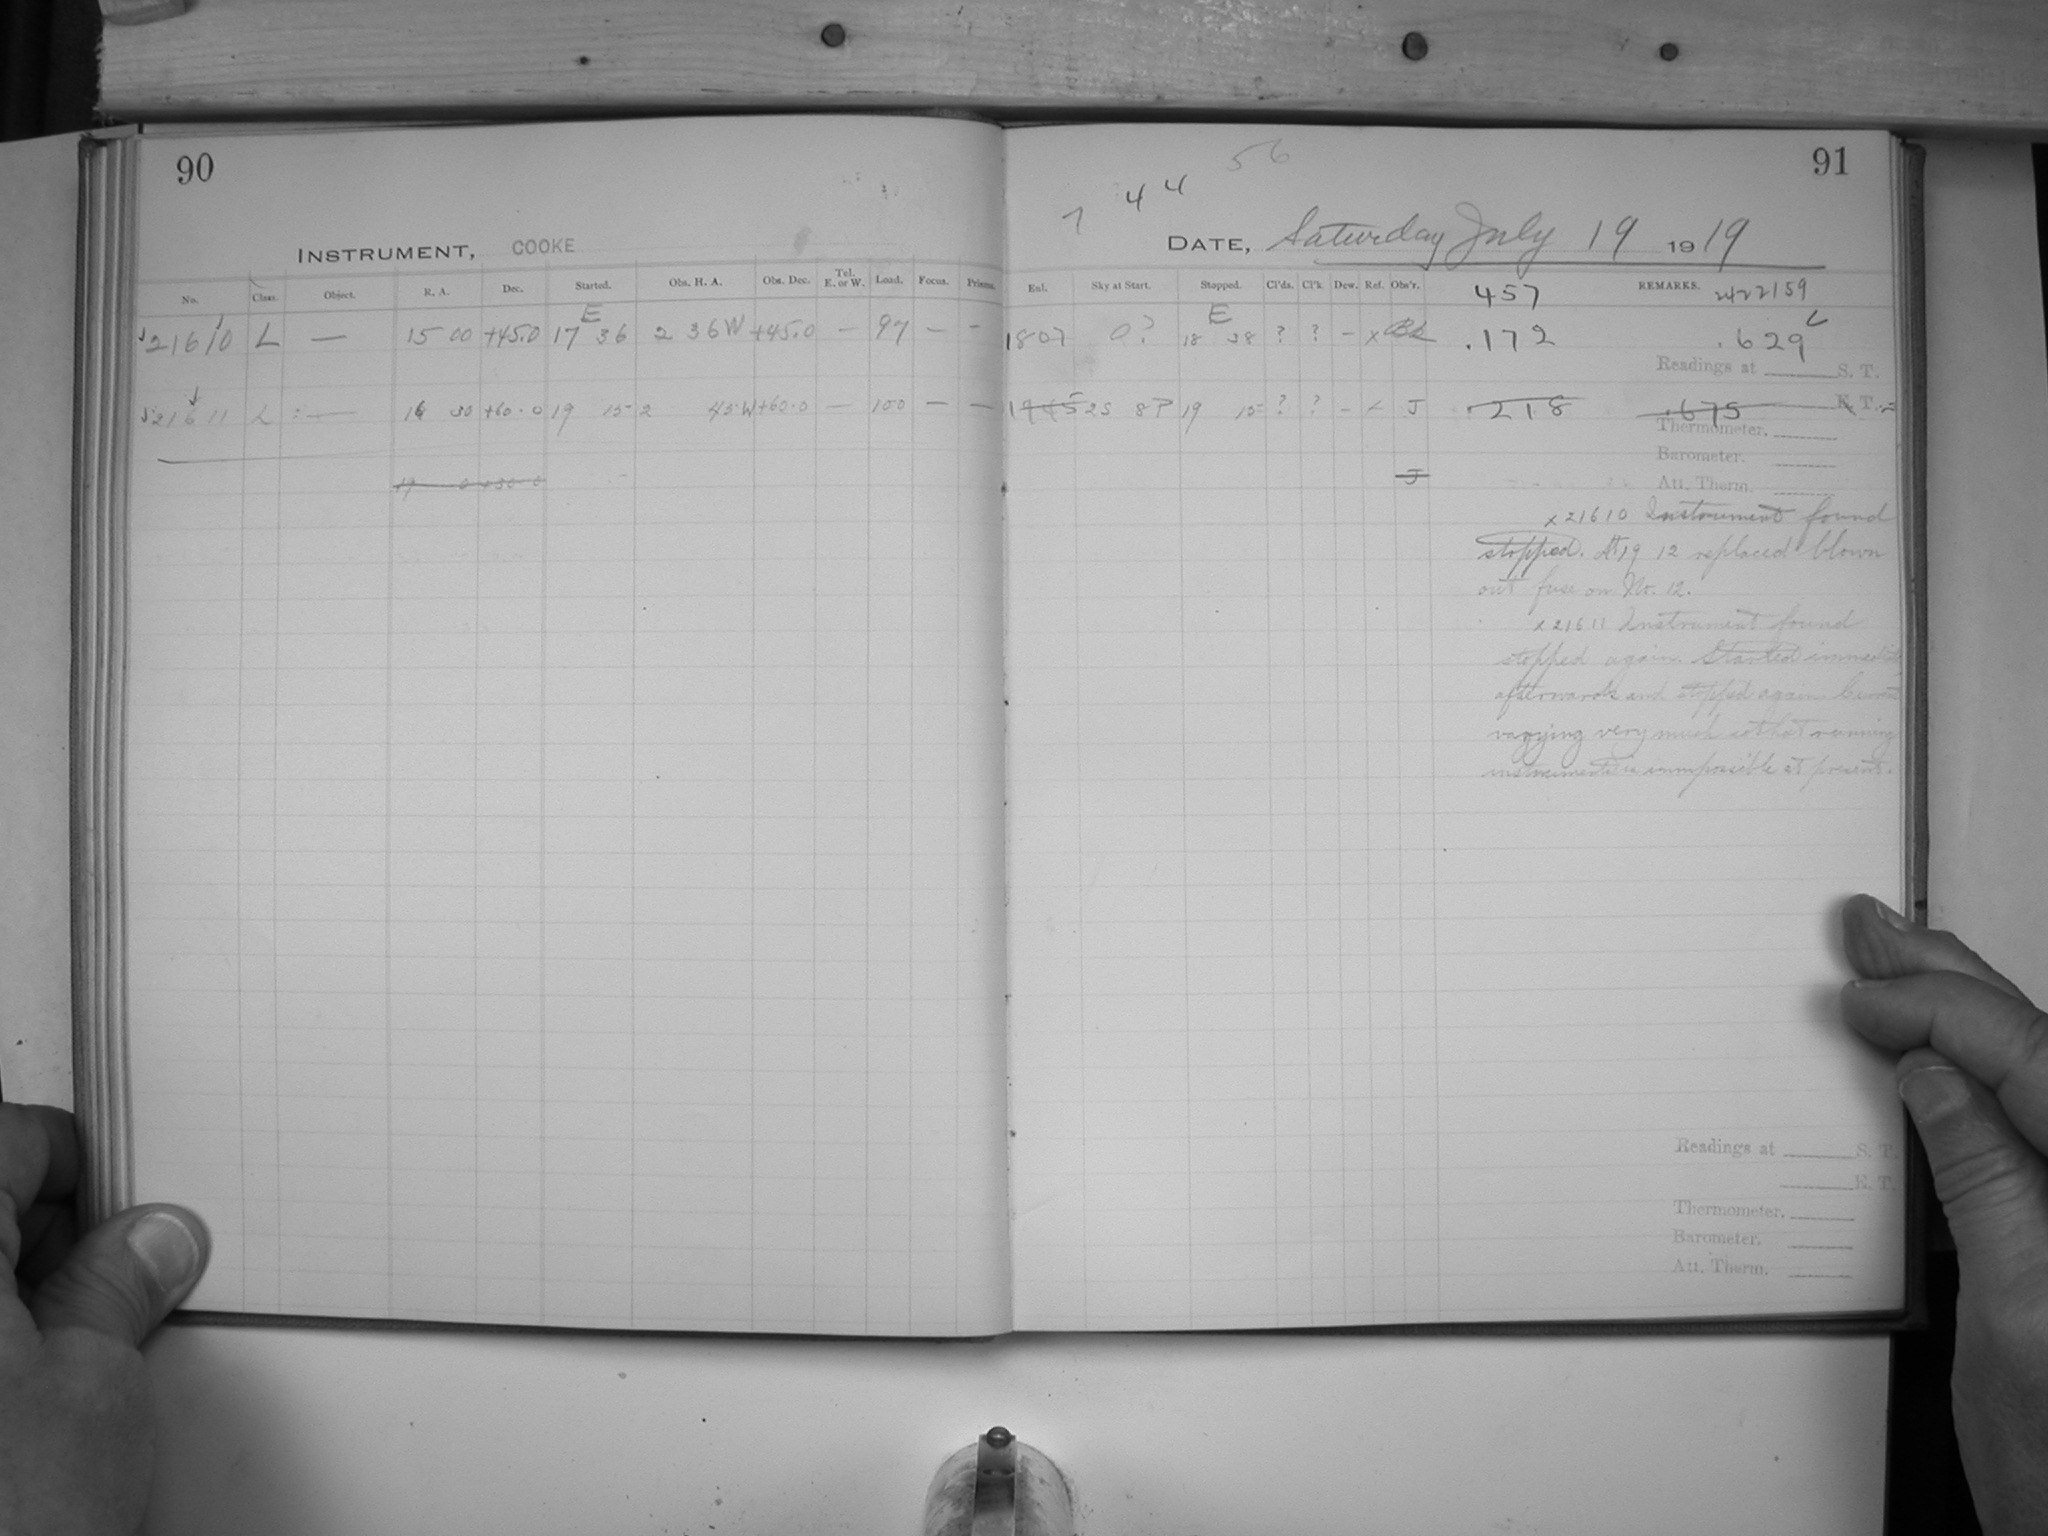 90
INSTRUMENT, COOKE
No. Class. Object. R. A. Dec. Started. Obs. H. A. Obs. Dec. Tel. E. or W. Load. Focus. Prisms.
E
21610 L — 15 00 +45.0 17 36 2 36 W +45.0 — 97 — —
21611 L — 16 30 +60.0 19 15 2 45 W +60.0 — 100 — —
19 0 +30 0
56
91
7 4 4
DATE, Saturday July 19 1919
Exl. Sky at Start. Stopped. Cl'ds. Cl'k. Dew. Ref. Obs'r. 457 REMARKS. 2422159
E
1807 0? 18 38 ? ? — x .172 .629
Readings at S. T.
25 8P 19 15 ? ? — x J .218 .675 E. T.
Thermometer.
Barometer.
J
Att. Therm.
x 21610 Instrument found
stopped. At 19 12 replaced blown
out fuse on No. 12.
x 21611 Instrument found
stopped again. Started
afterwards and stopped again.
varying very much so that running
instruments is immpossible at present.
Readings at S. T.
E. T.
Thermometer.
Barometer.
Att. Therm.